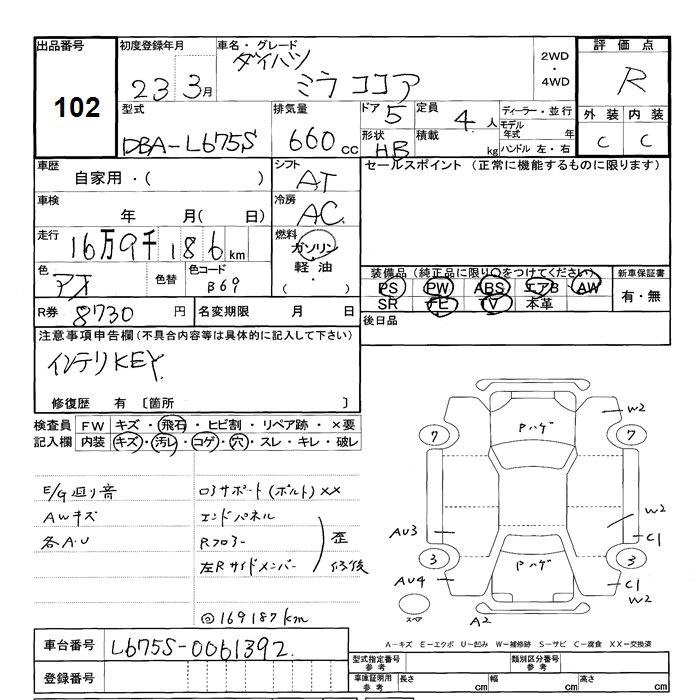 出品番号 初度登録年月 車名・グレード 2WD・4WD 評価点
102 23 3月 ダイハツ ミラ ココア R
型式 排気量 ドア 5 定員 4人 ディーラー・並行 外装 内装
DBA-L675S 660cc 形状 HB 積載 kg モデル年式 年 C C
ハンドル 左・右
車歴 シフト セールスポイント (正常に機能するものに限ります)
自家用・( ) AT
車検 冷房
年 月( 日) AC
走行 燃料
16万9千186km ガソリン・軽油・( )
色 色替 色コード 装備品(純正品に限り○をつけてください) 新車保証書
アオ B69 PS PW ABS エアB AW 有・無
SR FE V 本革
R券 8730円 名変期限 月 日 後日品
注意事項申告欄(不具合内容等は具体的に記入して下さい)
インテリKEY
修復歴 有 〔箇所 〕
検査員 FW キズ・飛石・ヒビ割・リペア跡・×要
記入欄 内装 キズ・汚レ・コゲ・穴・スレ・キレ・破レ
E/G廻り音 ロアサポート(ボルト)××
AWキズ エンドパネル
各A.U Rフロアー 歪
左Rサイドメンバー 修復
@169187km
Pハゲ W2
7 7
W2
AU3 C1
3 3
Pハゲ
AU4 C1
W2
スペア A2
A－キズ E－エクボ U－凹み W－補修跡 S－サビ C－腐食 XX－交換済
車台番号 L675S-0061392
型式指定番号 参考 類別区分番号 参考
登録番号 車庫証明用 参考 長さ cm 幅 cm 高さ cm